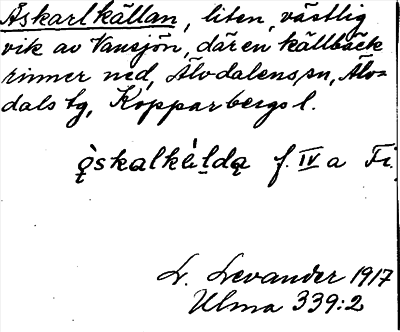 Åskarlkällan, liten, västlig
vik av Vansjön, där en källbäck
rinner ned, Älvdalens sn, Älv-
dals tg, Kopparbergs l.
ǫ̀skalkèlldą f. IV a Fi.
L. Levander 1917
Ulma 339:2